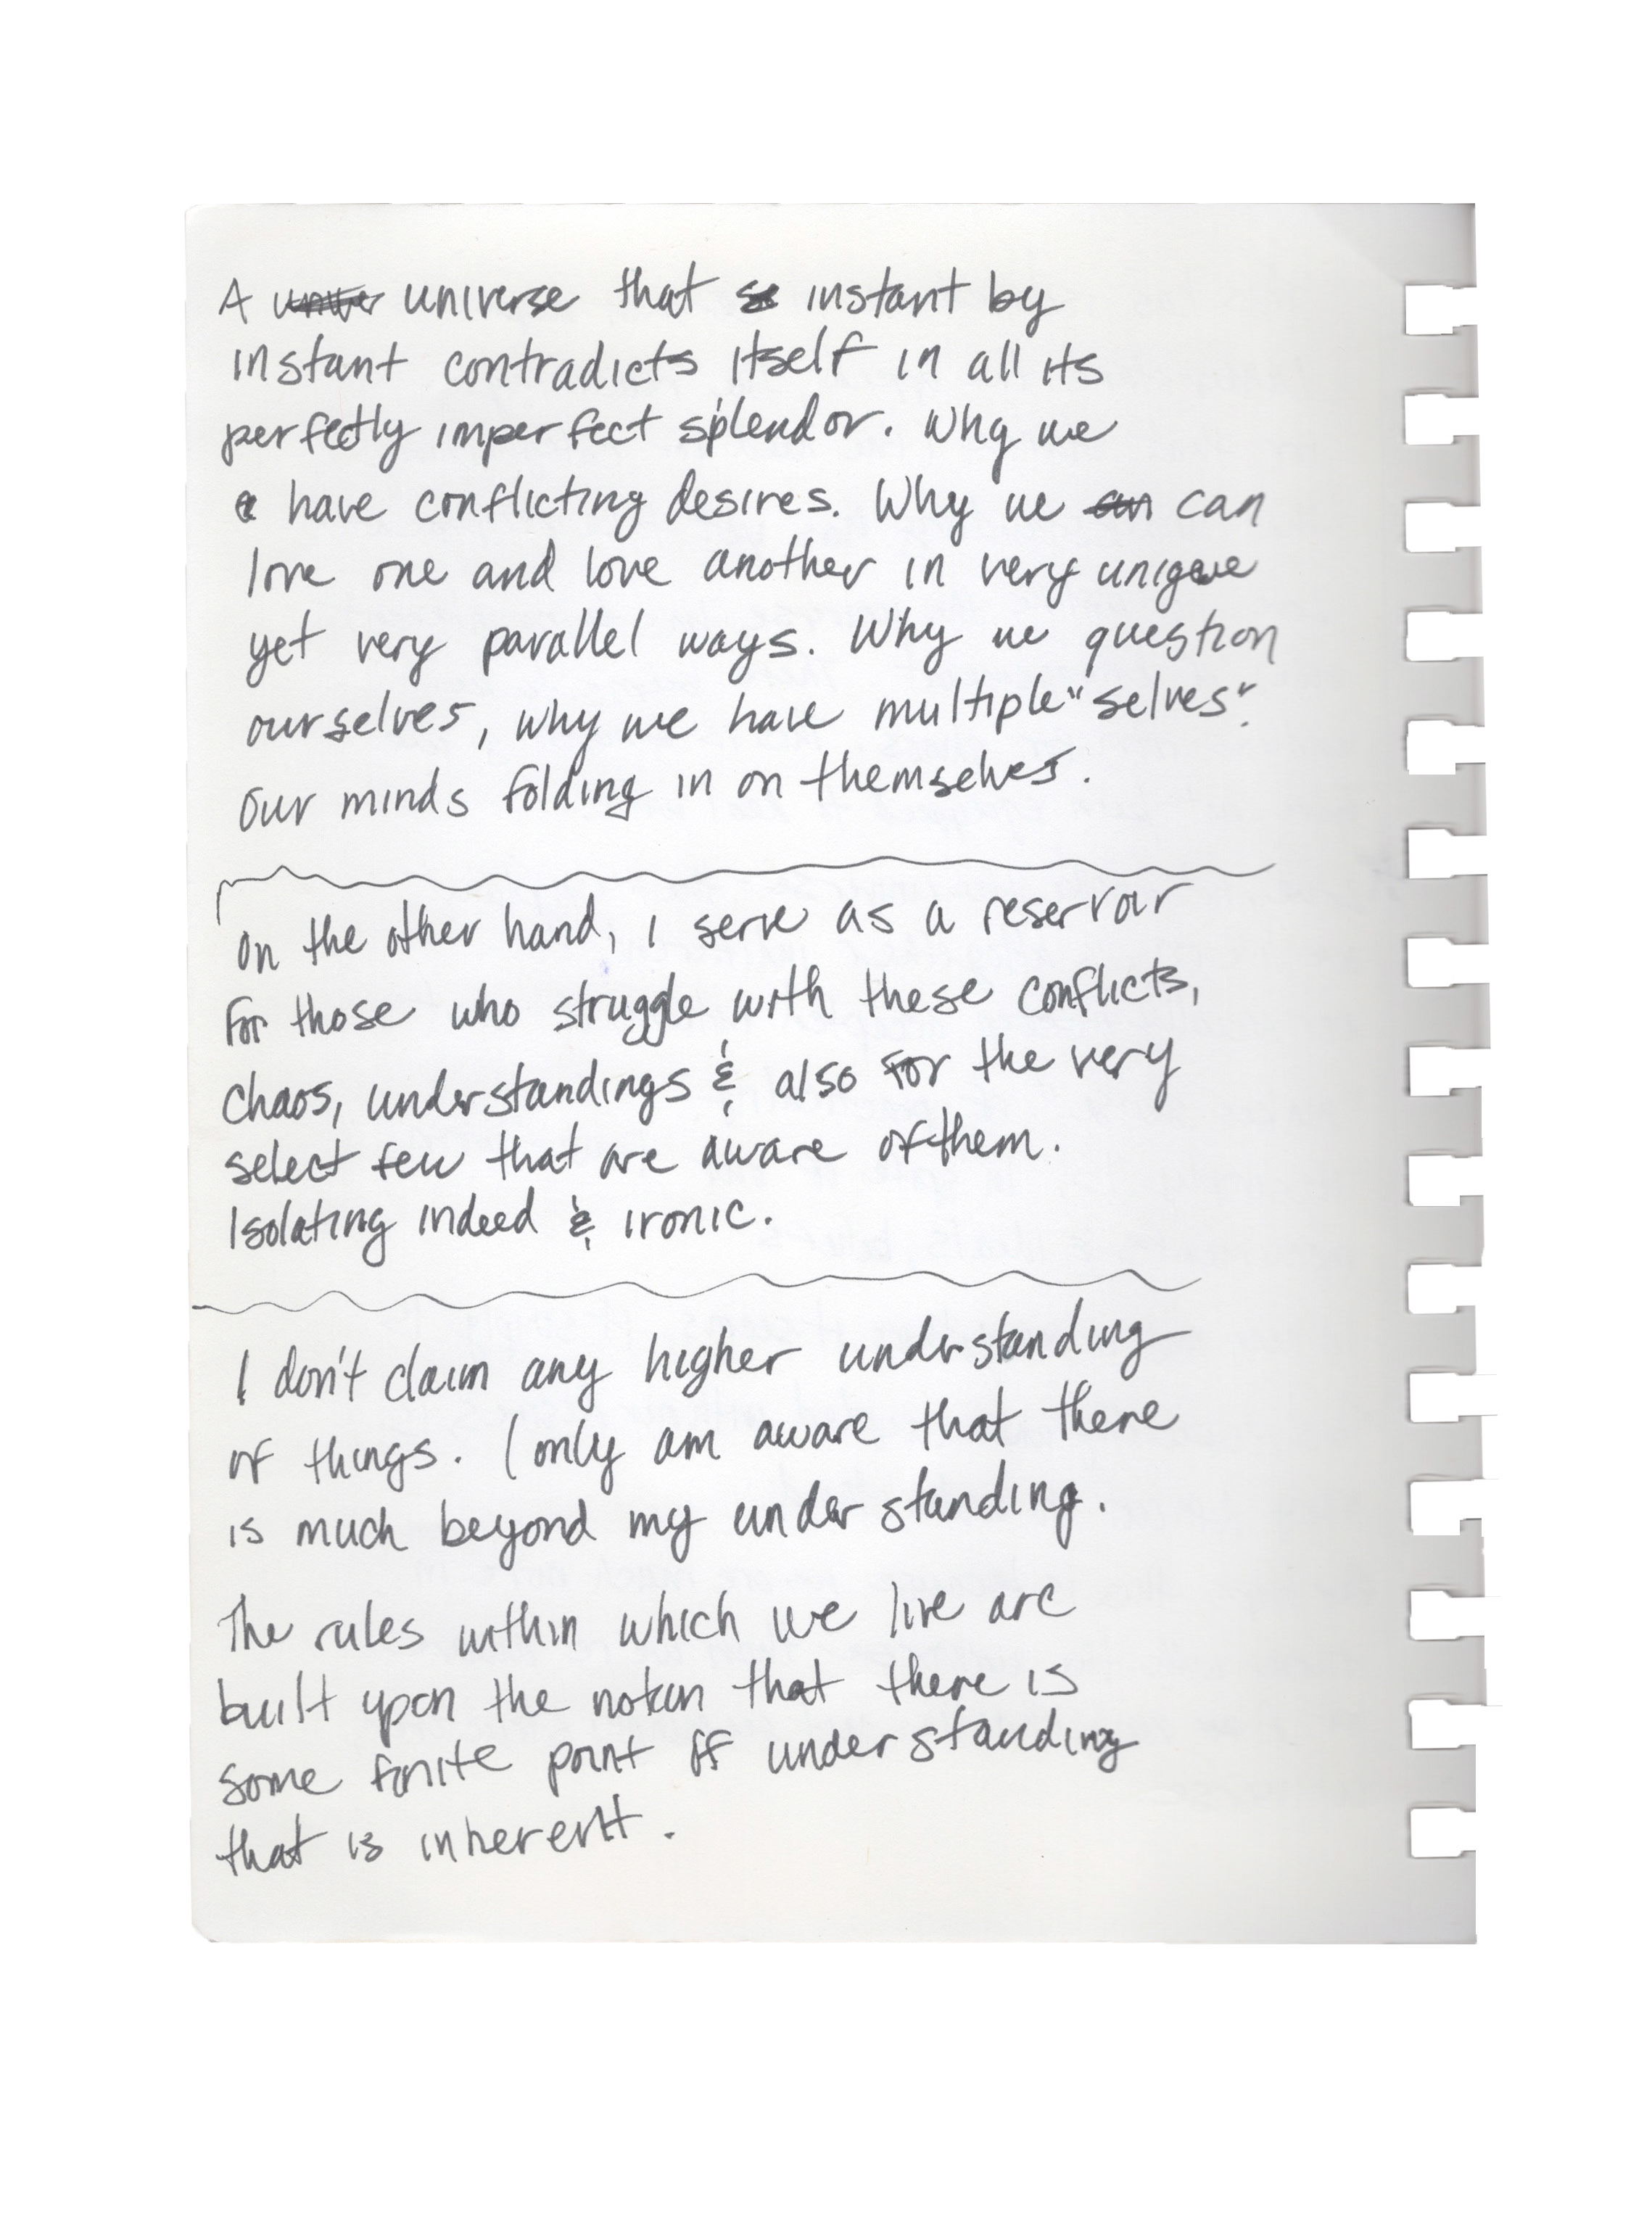 A universe that instant by
instant contradicts itself in all its
perfectly imperfect splendor. Why we
have conflicting desires. Why we can
love one and love another in very unique
yet very parallel ways. Why we question
ourselves, why we have multiple "selves".
Our minds folding in on themselves.
On the other hand, I serve as a reservoir
for those who struggle with these conflicts,
chaos, understandings & also for the very
select few that are aware of them.
Isolating indeed & ironic.
I don't claim any higher understanding
of things. I only am aware that there
is much beyond my understanding.
The rules within which we live are
built upon the notion that there is
some finite point of understanding
that is inherent.